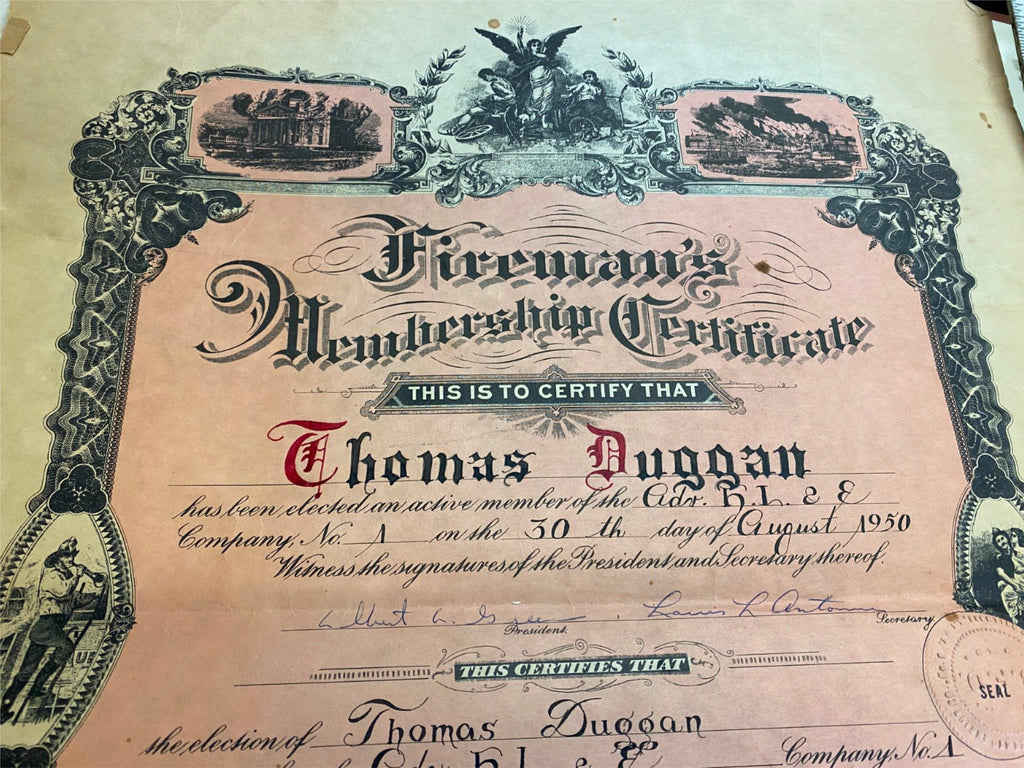 Fireman's
Membership Certificate
THIS IS TO CERTIFY THAT
Thomas Duggan
has been elected an active member of the Adv. H. L. & E
Company, No. 1 on the 30 th day of August 1950
Witness the signatures of the President and Secretary thereof.
Louis L
President.
Secretary.
THIS CERTIFIES THAT
SEAL
the election of Thomas Duggan
Adv. H. L. & E Company, No. 1